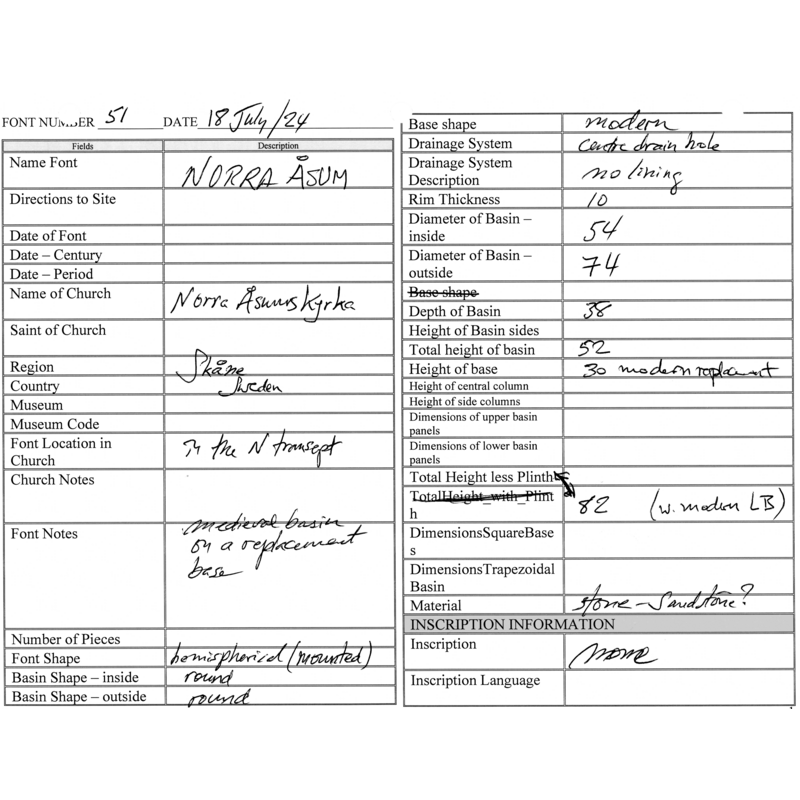 FONT NUMBER 51 DATE 18 July/24
Fields Description
Name Font NORRA ÅSUM
Directions to Site
Date of Font
Date – Century
Date – Period
Name of Church Norra Åsums Kyrka
Saint of Church
Region Skåne
Country Sweden
Museum
Museum Code
Font Location in
Church
in the N transept
Church Notes
Font Notes
medieval basin
on a replacement
base
Number of Pieces
Font Shape hemispherical (mounted)
Basin Shape – inside round
Basin Shape – outside round
Base shape modern
Drainage System centre drain hole
Drainage System
Description
no lining
Rim Thickness 10
Diameter of Basin –
inside
54
Diameter of Basin –
outside
74
Base shape
Depth of Basin 38
Height of Basin sides
Total height of basin 52
Height of base 30 modern replacement
Height of central column
Height of side columns
Dimensions of upper basin
panels
Dimensions of lower basin
panels
Total Height less Plinth
TotalHeight_with_Plint
h
82 (w. modern LB)
DimensionsSquareBase
s
DimensionsTrapezoidal
Basin
Material stone – Sandstone?
INSCRIPTION INFORMATION
Inscription none
Inscription Language